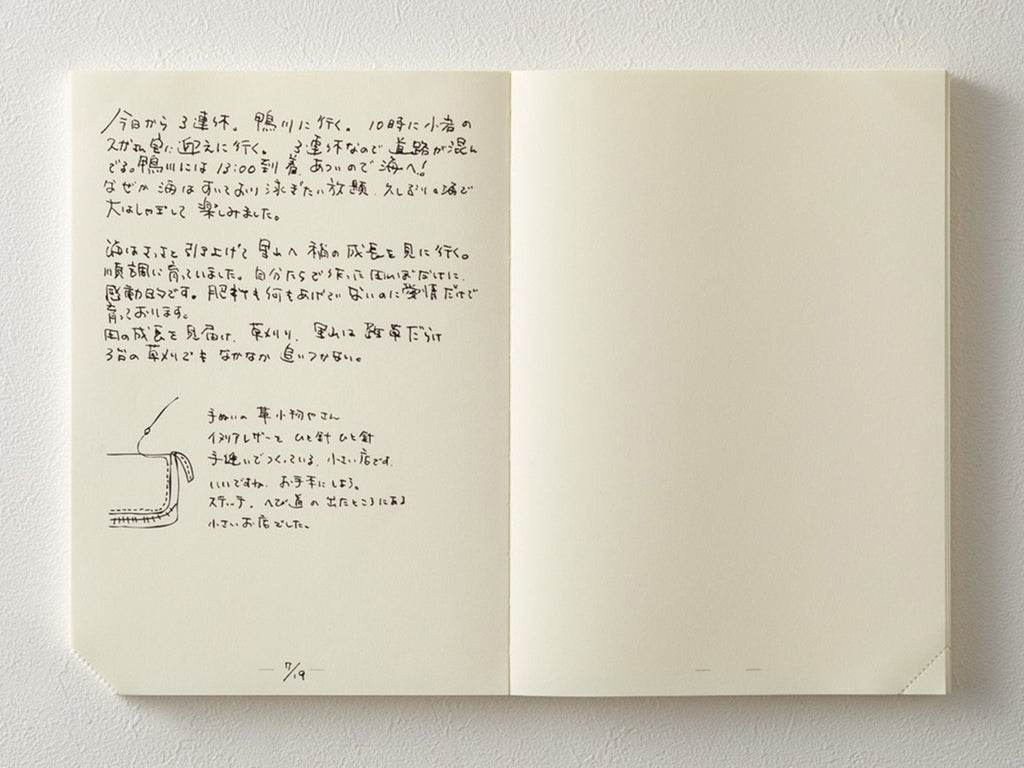 今日から 3連休。 鴨川に行く。 10時に小者の
スガさん宅に迎えに行く。 3連休なので道路が混ん
でる。鴨川には 13:00到着。あついので海へ!
なぜか 海はすいており 泳ぎたい放題。久しぶりの海で
大はしゃぎして 楽しみました。
海はさっさと引き上げて 里山へ 稲の成長を見に行く。
順調に育っていました。自分たちで作った田んぼだけに、
感動的です。肥料も何もあげていないのに愛情だけで
育っております。
田の成長を見届け、草刈り、里山は雑草だらけ
3台の草刈りでも なかなか 追いつかない。
手ぬいの 革小物やさん
イタリアレザーを ひと針 ひと針
手縫いでつくっている、小さい店です。
いいですね、お手本にしよう。
ステッチ、へび道の出たところにある
小さいお店でした。
7/19